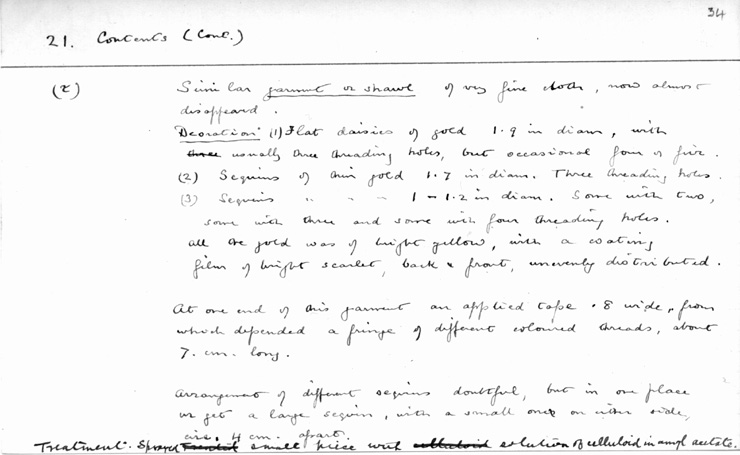 34
21. Contents (Cont.)
(z) Similar garment or shawl of very fine cloth, now almost
disappeared.
Decoration (1) Flat daisies of gold 1.9 in diam, with
three usually three threading holes, but occasional four or five.
(2) Sequins of thin gold 1.7 in diam. Three threading holes.
(3) Sequins " " " 1 – 1.2 in diam. Some with two,
some with three and some with four threading holes.
All the gold was of bright yellow, with a coating
film of bright scarlet, back & front, unevenly distributed.
At one end of this garment an applied tape .8 wide, from
which depended a fringe of different coloured threads, about
7. cm. long.
Arrangement of different sequins doubtful, but in one place
we get a large sequin, with a small one on either side,
circ. 4 cm. apart.
Treatment: Sprayed small piece with celluloid solution of celluloid in amyl acetate.